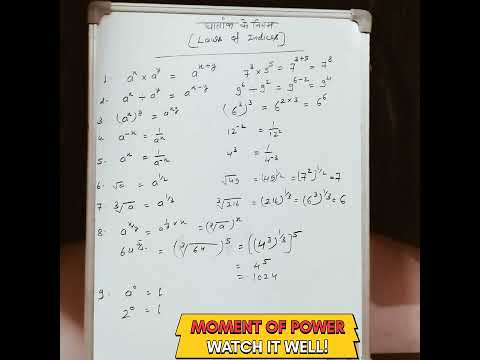 घातांक के नियम
(Laws of Indices)
1. aˣ × aʸ = aˣ⁺ʸ 7³ × 7⁵ = 7³⁺⁵ = 7⁸
2. aˣ ÷ aʸ = aˣ⁻ʸ 9⁶ ÷ 9² = 9⁶⁻² = 9⁴
3. (aˣ)ʸ = aˣʸ (6²)³ = 6²ˣ³ = 6⁶
4. a⁻ˣ = 1/aˣ 12⁻² = 1/12²
5. aˣ = 1/a⁻ˣ 4³ = 1/4⁻³
6. √a = a^1/2 √49 = (49)^1/2 = (7²)^1/2 = 7
7. ∛a = a^1/3 ∛216 = (216)^1/3 = (6³)^1/3 = 6
8. a^x/y = a^1/y × x = (ʸ√a)ˣ
64^5/3 = (∛64)⁵ = ((4³)^1/3)⁵
= 4⁵
= 1024
9. a⁰ = 1
2⁰ = 1
MOMENT OF POWER
WATCH IT WELL!